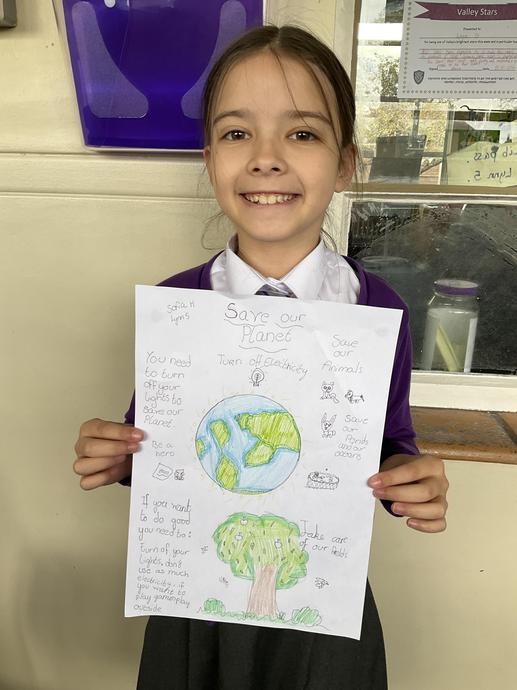 Valley Stars
Presented to
Pass.
Lynn 5.
Sofia H
Lynn 5
Save our
Planet
Turn off Electricity
Save
our
Animals
You need
to turn
off your
lights to
save our
Planet.
Be a
hero
Save
our
Ponds
and our
oceans
If you want
to do good
you need to:
Turn of your
lights, don't
use as much
electricity. if
you want to
play games play
outside
Take care
of our fields